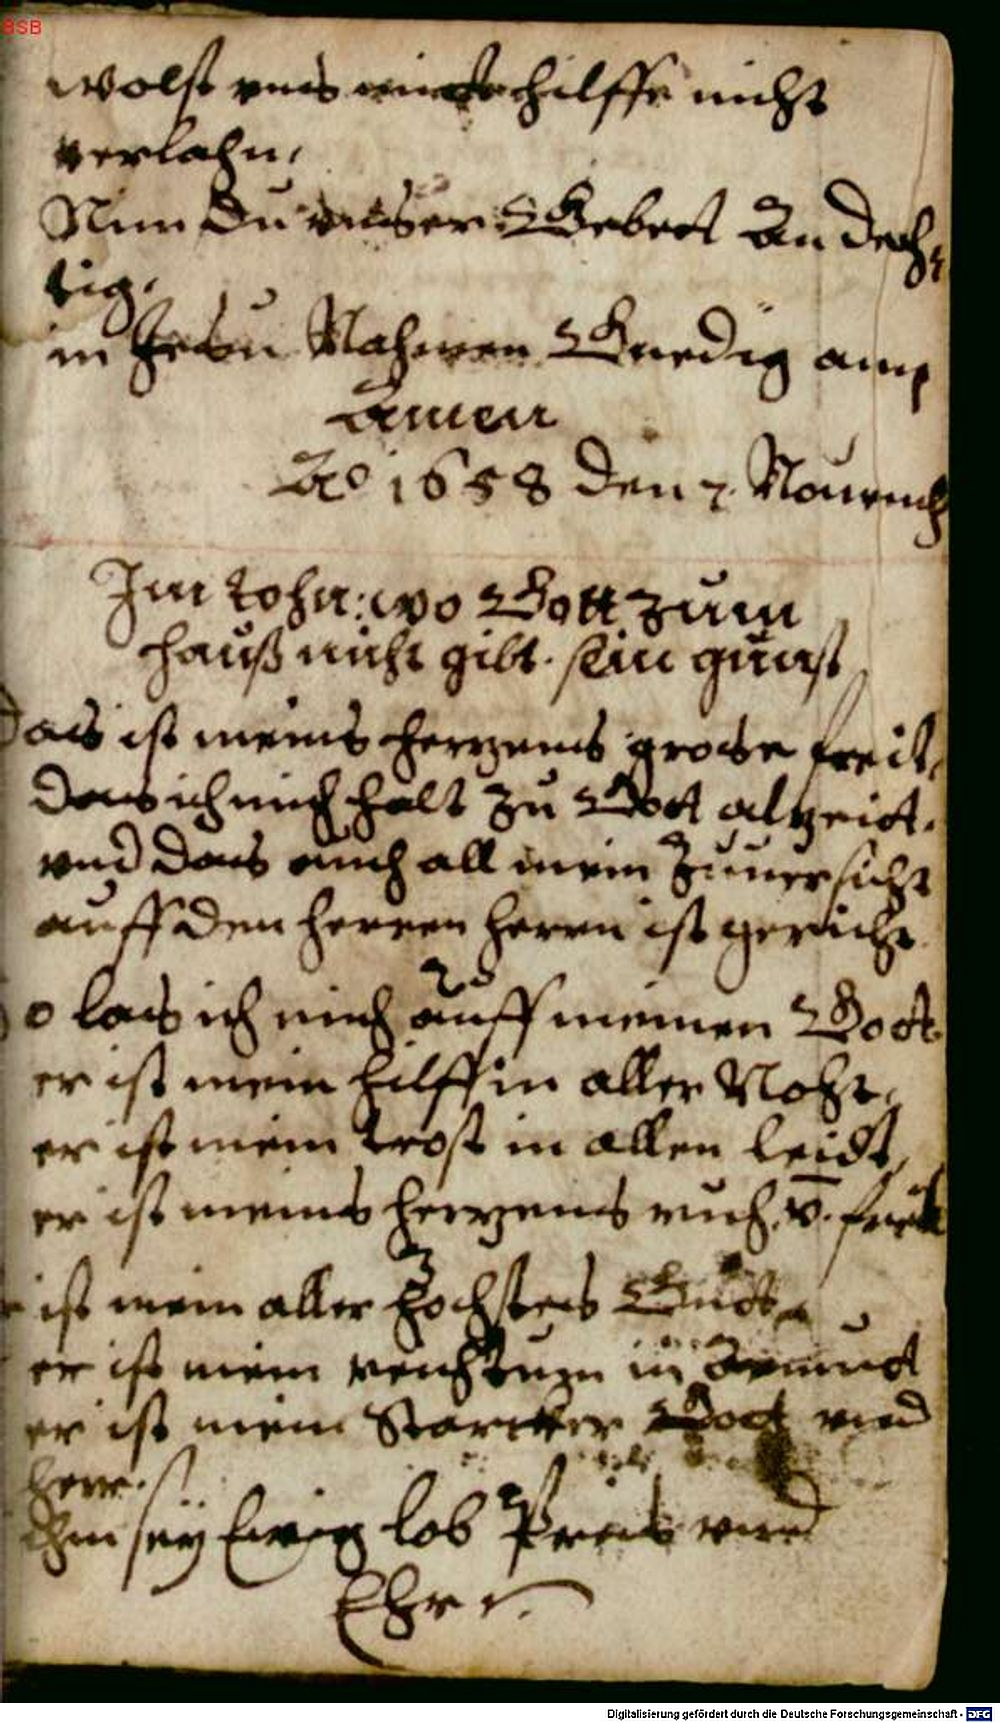 BSB
wolst uns hilffe nicht
verlahn,
Nim du unser Gebett an dech¬
tig,
in Jesu Nahmen Gnedig an
Amen
Ao 1658 den 7. Nouemb
Im tohn: wo Gott zum
hauß nicht gibt. sein gunst
Das ist meins herzens grose freit,
das ich mich halt zu Gott alzeit.
und das auch all mein zuuersicht
auff den herren herrn ist gericht
2
o las ich mich auff meinen Gott.
er ist mein hilff in aller Noht,
er ist mein trost in allen leidt,
er ist meins herzens ruh. v̄. freit
3
er ist mein aller hochstes Gudt
er ist mein reichtum in armudt
er ist mein Starcker Gott und
herr.
Ihm seÿ Ewig lob Preis und
Ehre.
Digitalisierung gefördert durch die Deutsche Forschungsgemeinschaft - DFG